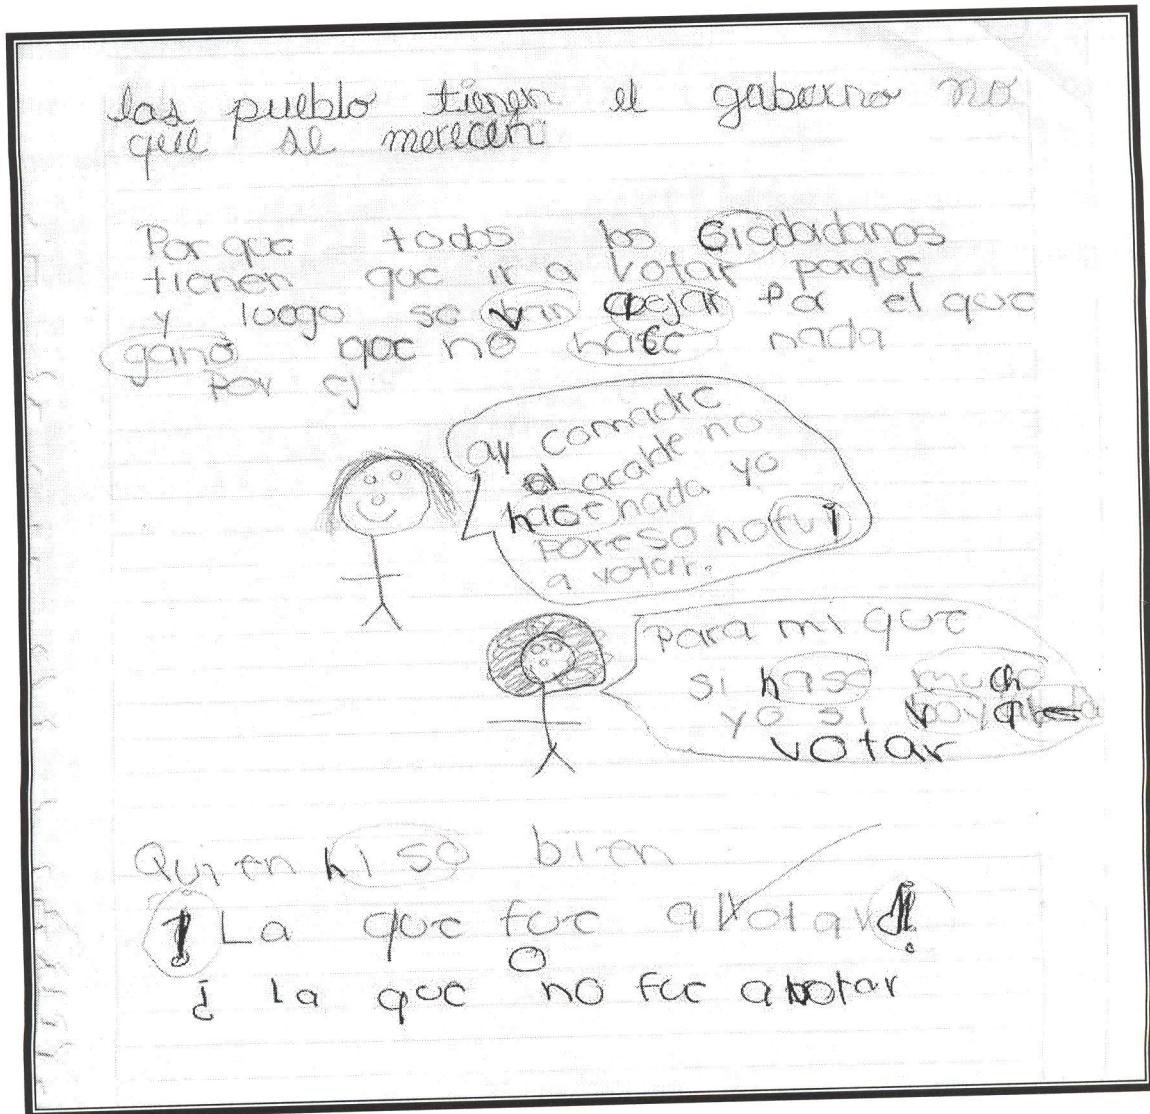 las pueblo tienen el gabierno no
que se merecen
Por que todos los Ciodadanos
tienen que ir a votar porque
y luogo se van apejar Por el que
gano que no hace nada
Por ej
ay comadre
el acalde no
hace nada yo
por eso no fui
a votar.
Para mi que
si hase mucho
yo si voy
votar
Quien hiso bien
¡La que fue a votar!
O
¿ la que no fue a votar